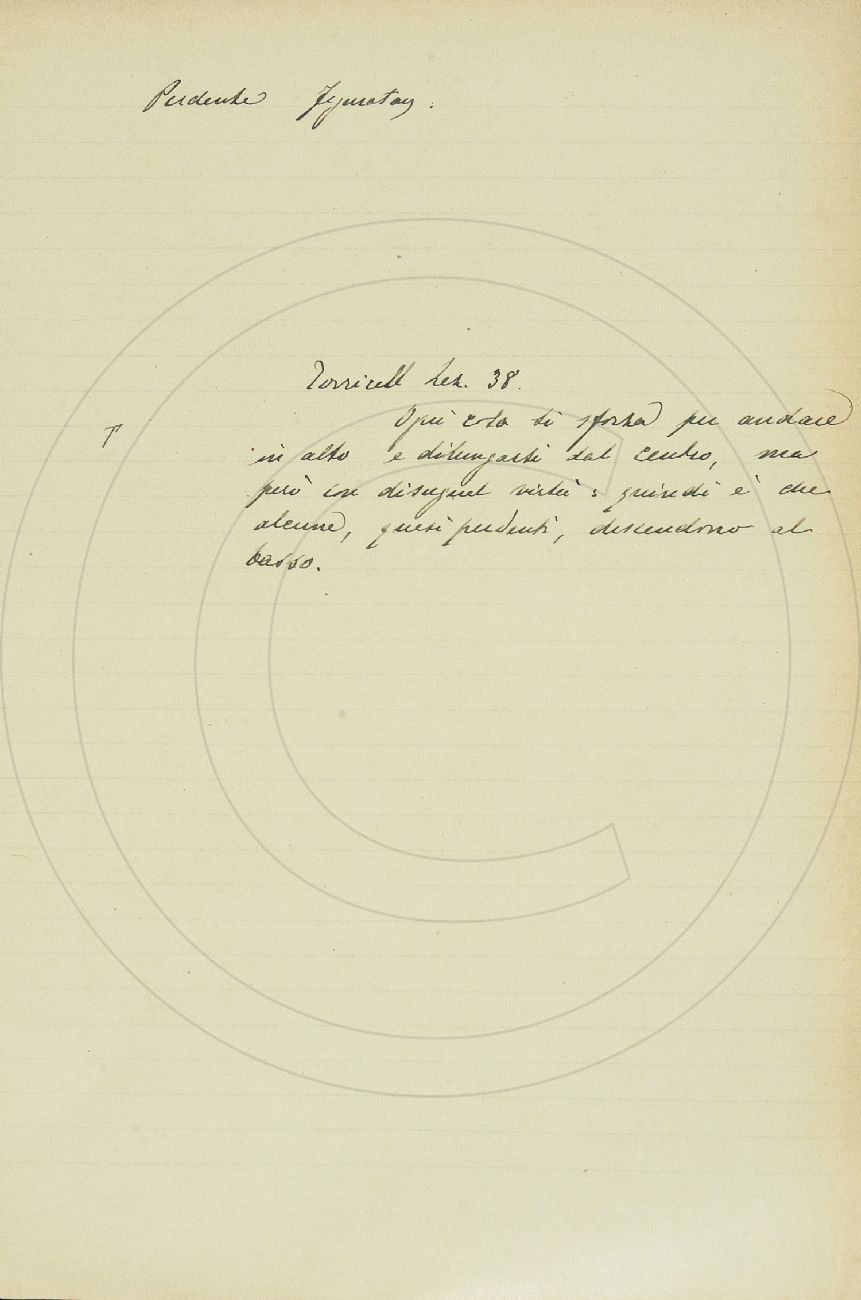 Perdente Figuratam.
Torricell Lez. 38.
Ogni cosa si sforza per andare
in alto e dilungarsi dal centro, ma
però con disugual virtù: quindi è che
alcune, quasi perdenti, descendono al
basso.